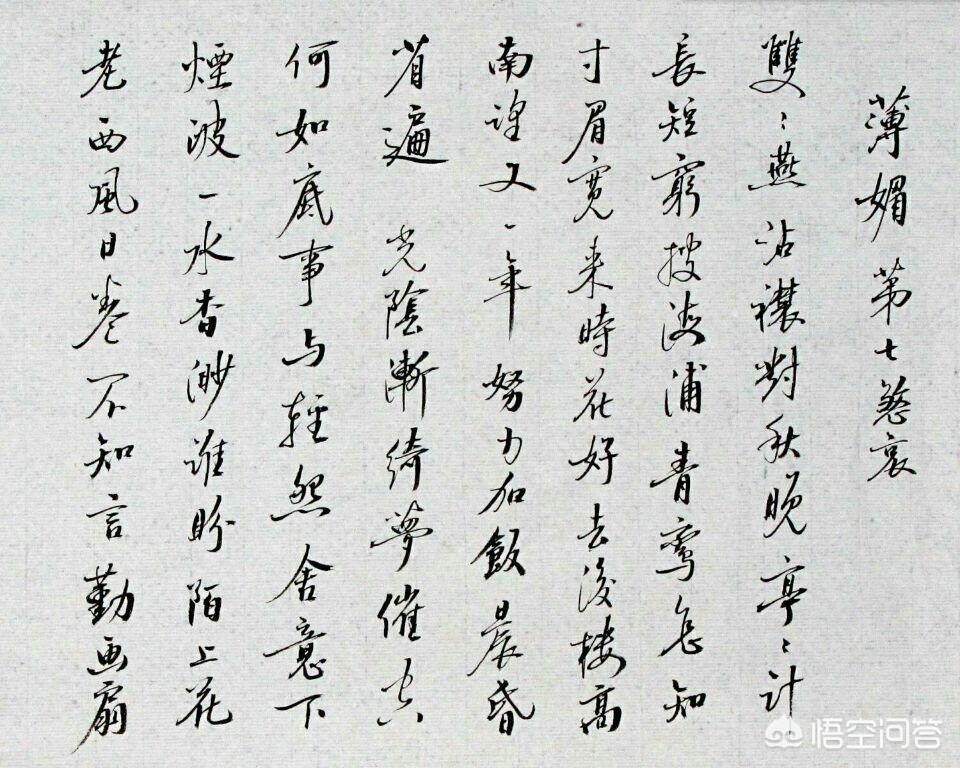 薄媚 第七煞衮
雙〻燕沾襟對秋晚亭〻計
長短窮搜海浦青鸾怎知
寸眉寬来時花好去後楼高
南望又一年努力加飯晨昏
省遍 光陰漸綺夢催空
何如底事与輕怨舍意下
煙波一水杳渺誰盼陌上花
老西風日卷不知言勤画扇
悟空问答